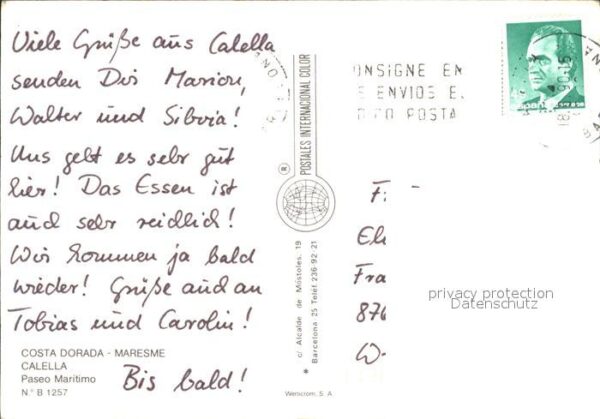 Viele Grüße aus Calella
senden Dir Marion,
Walter und Silvia!
Uns geht es sehr gut
hier! Das Essen ist
auch sehr reichlich!
Wir kommen ja bald
wieder! Grüße auch an
Tobias und Carolin!
Bis bald!
COSTA DORADA - MARESME
CALELLA
Paseo Marítimo
N.° B 1257
POSTALES INTERNACIONAL COLOR
®
c/ Alcalde de Móstoles, 19
* Barcelona 25 Teléf. 236-92 21
Wenscrom, S. A.
ONSIGNE EN
ENVIOS E
POSTA
Fra
876
W-
privacy protection
Datenschutz